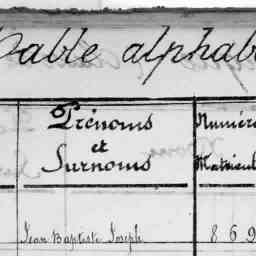 Table alphab
Prénoms Numéro
et
Surnoms Matricul
Jean Baptiste Joseph 869